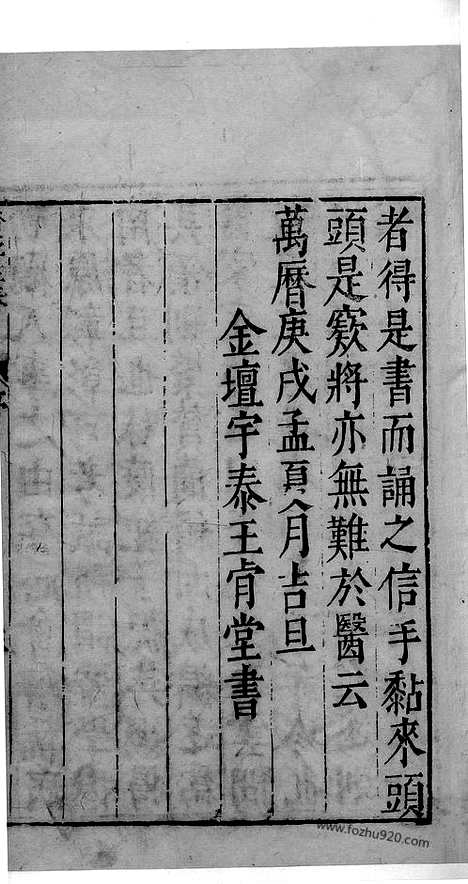 者得是書而誦之信手黏來頭
頭是竅將亦無難於醫云
萬曆庚戌孟夏月吉旦
金壇宇泰王肯堂書
www.fozhu920.com